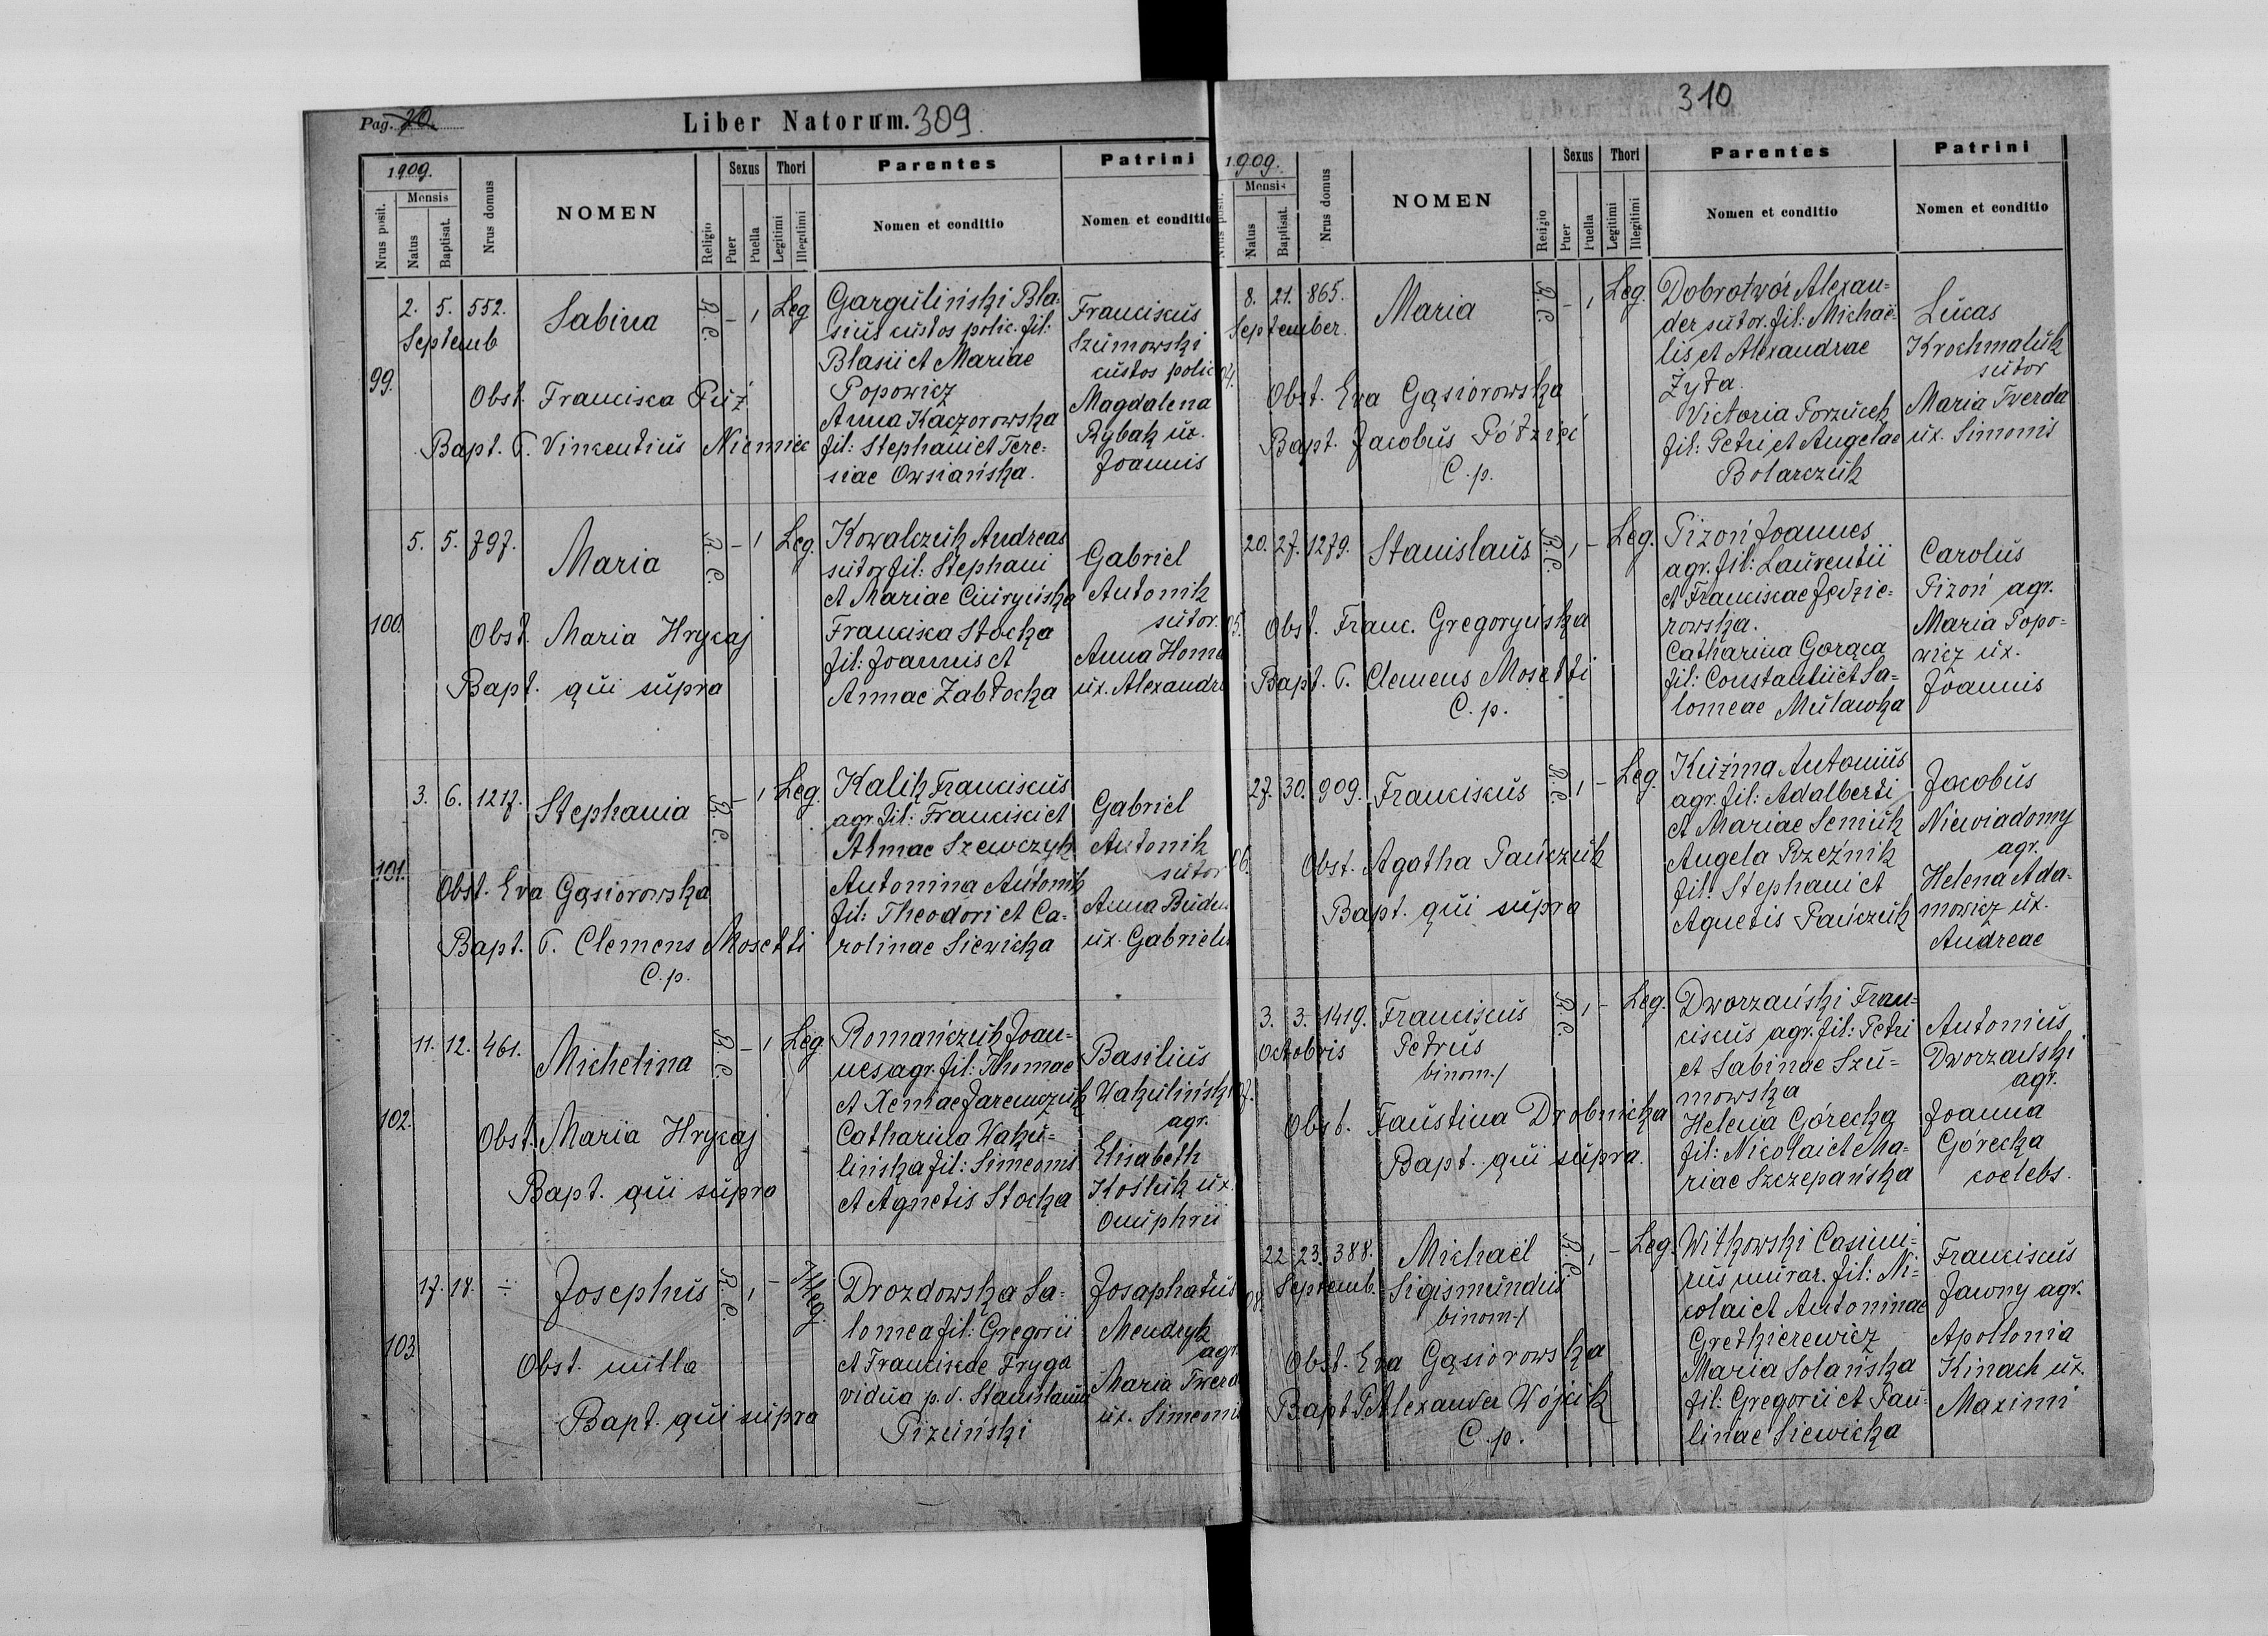 Pag. 70.
Liber Natorum. 309.
1909.
Nrus posit.
Mensis
Natus
Baptisat.
Nrus domus
NOMEN
Religio
Sexus
Puer
Puella
Thori
Legitimi
Illegitimi
Parentes
Nomen et conditio
Patrini
Nomen et conditio
99.
2. 5. 552.
Septemb
Sabina
R. C.
- 1
Leg
Obst. Francisca Puź
Bapt. P. Vincentius Niemiec
Garguliński Bla-
sius custos polic. fil:
Blasii et Mariae
Popowicz
Anna Kaczorowska
fil: Stephani et Tere-
siae Owsiańska.
Franciscus
Szumowski
custos polic
Magdalena
Rybak ux.
Joannis
100.
5. 5. 797.
Maria
R. C.
- 1
Leg.
Obst. Maria Hrycaj
Bapt. qui supra
Kowalczuk Andreas
sutor fil: Stephani
et Mariae Ciuryńska
Francisca Stocka
fil: Joannis et
Annae Zabłocka
Gabriel
Antonik
sutor.
Anna Homa
ux. Alexandri
101.
3. 6. 1217.
Stephania
R. C.
- 1
Leg.
Obst. Eva Gąsiorowska
Bapt. P. Clemens Mosetti
C. p.
Kalik Franciscus
agr. fil: Francisci et
Annae Szewczyk
Antonina Antonik
fil: Theodori et Ca-
rolinae Siewicka
Gabriel
Antonik
sutor
Anna
ux. Gabrielis
102.
11. 12. 461.
Michelina
R. C.
- 1
Leg
Obst. Maria Hrycaj
Bapt. qui supra
Romańczuk Joan-
nes, agr. fil: Thomae
et Xeniae Jaremczuk
Catharina Waku-
lińska fil: Simeonis
et Agnetis Stocka
Basilius
Wakuliński
agr.
Elisabeth
Kośluk ux.
Onuphrii
103
17. 18. ÷
Josephus
R. C.
1 -
Illeg.
Obst. nulla
Bapt. qui supra
Drozdowska Sa-
lomea fil: Gregorii
et Franciscae Fryga
vidua p. d. Stanislaum
Piziński
Josaphatus
Mendryk
agr.
Maria Twerd
ux. Simeonis
310
1909.
Nrus posit.
Mensis
Natus
Baptisat.
Nrus domus
NOMEN
Religio
Sexus
Puer
Puella
Thori
Legitimi
Illegitimi
Parentes
Nomen et conditio
Patrini
Nomen et conditio
04.
8. 21. 865.
September.
Maria
R. C.
- 1
Leg.
Obst. Eva Gąsiorowska
Bapt. Jacobus Półzięć
C. p.
Dobrotwór Alexan-
der sutor. fil: Michaë-
lis et Alexandrae
Żyła.
Victoria Porzucek
fil: Petri et Angelae
Bolarczuk
Lucas
Krochmaluk
sutor
Maria Twerda
ux. Simonis
05.
20. 27. 1279.
Stanislaus
R. C.
1 -
Leg.
Obst. Franc. Gregoryńska
Bapt. P. Clemens Mosetti
C. p.
Pizoń Joannes
agr. fil: Laurentii
et Franciscae Jędzie-
rowska.
Catharina Gorąca
fil: Constantii et Sa-
lomeae Muławka
Carolus
Pizoń agr.
Maria Popo-
wicz ux.
Joannis
06.
27. 30. 909.
Franciscus
R. C.
1 -
Leg.
Obst. Agatha Pańczuk
Bapt. qui supra
Kuźma Antonius
agr. fil: Adalberti
et Mariae Semiuk
Angela Rzeźnik
fil: Stephani et
Agnetis Pańczuk
Jacobus
Niewiadomy
agr.
Helena Ada-
mowicz ux.
Andreae
07.
3. 3. 1419.
Octobris
Franciscus
Petrus
binom./
R. C.
1 -
Leg.
Obst. Faustina Drobnicka
Bapt. qui supra.
Dworzański Fran-
ciscus agr. fil: Petri
et Sabinae Szu-
mowska
Helena Górecka
fil: Nicolai et Ma-
riae Szczepańska
Antonius
Dworzański
agr.
Joanna
Górecka
coelebs.
08.
22 23. 388.
Septemb.
Michaël
Sigismundus
binom./
R. C.
1 -
Leg.
Obst. Eva Gąsiorowska
Bapt. P. Alexander Wójcik
C. p.
Witkowski Casimi-
rus murar. fil: Ni-
colai et Antoninae
Gretkierewicz
Maria Solańska
fil: Gregorii et Pau-
linae Siewicka
Franciscus
Jawny agr.
Apollonia
Kinach ux.
Maximi